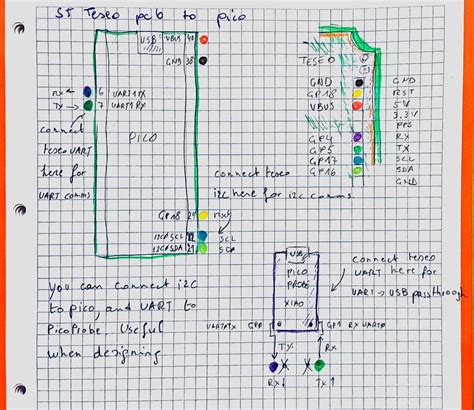 ST Teseo pcb to pico
USB
VBUS 40
GND 38
RX 6 UART1TX
TX 7 UART1 RX
connect
teseo UART
here for
UART comms
PICO
TESEO
GND GND
GP18 RST
VBUS 5V
3.3V
PPS
GP4 RX
GP5 TX
GP17 SCL
GP16 SDA
GND
connect teseo
i2c here for i2c comms
GP18 24 reset
I2C0SCL 22 SCL
I2C0SDA 21 SDA
You can connect i2c
to pico, and UART to
PicoProbe. Useful
when designing
USB
PICO
PROBE
XIAO
connect teseo
UART here for
UART → USB passthrough
UART0TX GP0
GP1 RX UART0
TX
RX
RX ↓
TX ↑